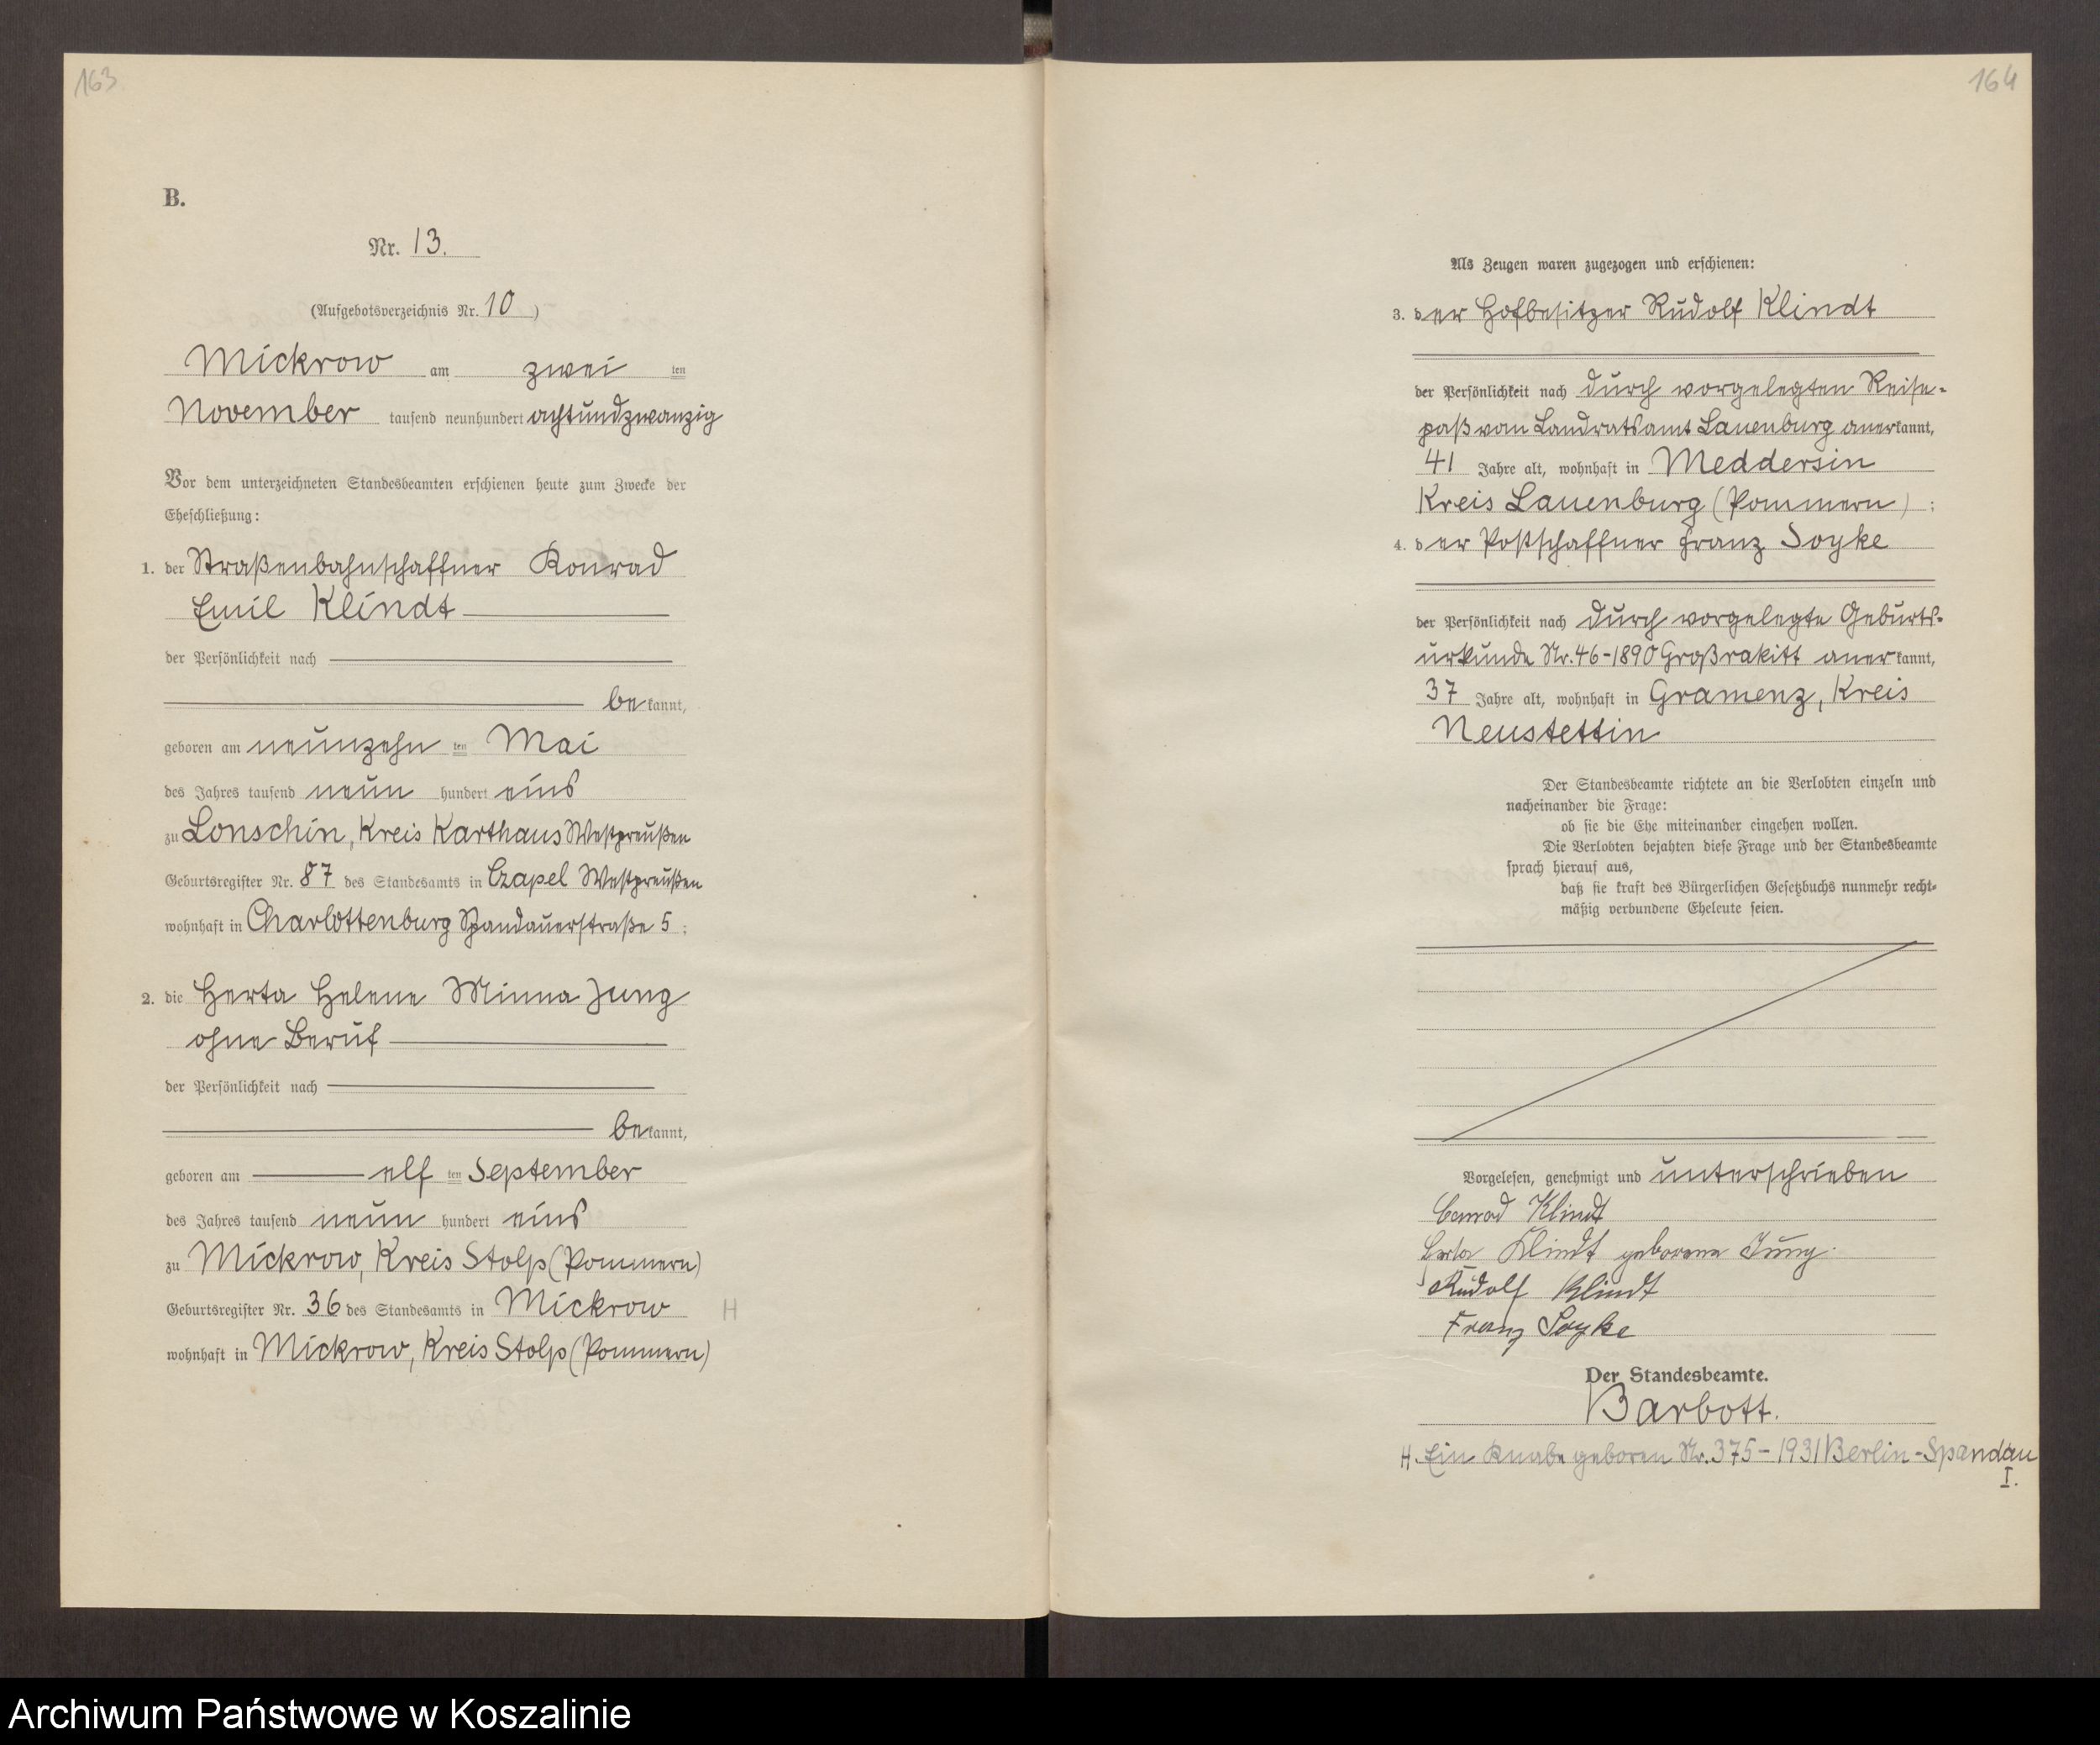 163
B.
Nr. 13.
(Aufgebotsverzeichnis Nr. 10)
Mickrow am zwei ten
November tausend neunhundert achtundzwanzig
Vor dem unterzeichneten Standesbeamten erschienen heute zum Zwecke der
Eheschließung:
1. der Straßenbahnschaffner Konrad
Emil Klindt
der Persönlichkeit nach
bekannt,
geboren am neunzehn ten Mai
des Jahres tausend neun hundert eins
zu Lonschin, Kreis Karthaus Westpreußen
Geburtsregister Nr. 87 des Standesamts in Czapel Westpreußen
wohnhaft in Charlottenburg Spandauerstraße 5 ;
2. die Herta Helene Minna Jung
ohne Beruf
der Persönlichkeit nach
bekannt,
geboren am elf ten September
des Jahres tausend neun hundert eins
zu Mickrow, Kreis Stolp (Pommern)
Geburtsregister Nr. 36 des Standesamts in Mickrow H
wohnhaft in Mickrow, Kreis Stolp (Pommern)
164
Als Zeugen waren zugezogen und erschienen:
3. der Hofbesitzer Rudolf Klindt
der Persönlichkeit nach durch vorgelegten Reise-
paß vom Landratsamt Lauenburg anerkannt,
41 Jahre alt, wohnhaft in Meddersin
Kreis Lauenburg (Pommern) ;
4. der Postschaffner Franz Soyke
der Persönlichkeit nach durch vorgelegte Geburts-
urkunde Nr. 46-1890 Großrakitt anerkannt,
37 Jahre alt, wohnhaft in Gramenz, Kreis
Neustettin
Der Standesbeamte richtete an die Verlobten einzeln und
nacheinander die Frage:
ob sie die Ehe miteinander eingehen wollen.
Die Verlobten bejahten diese Frage und der Standesbeamte
sprach hierauf aus,
daß sie kraft des Bürgerlichen Gesetzbuchs nunmehr recht-
mäßig verbundene Eheleute seien.
Vorgelesen, genehmigt und unterschrieben
Conrad Klindt
Herta Klindt geborene Jung.
Rudolf Klindt
Franz Soyke
Der Standesbeamte.
Barbott.
H. Ein Knabe geboren Nr. 375-1931 Berlin-Spandau
I.
Archiwum Państwowe w Koszalinie